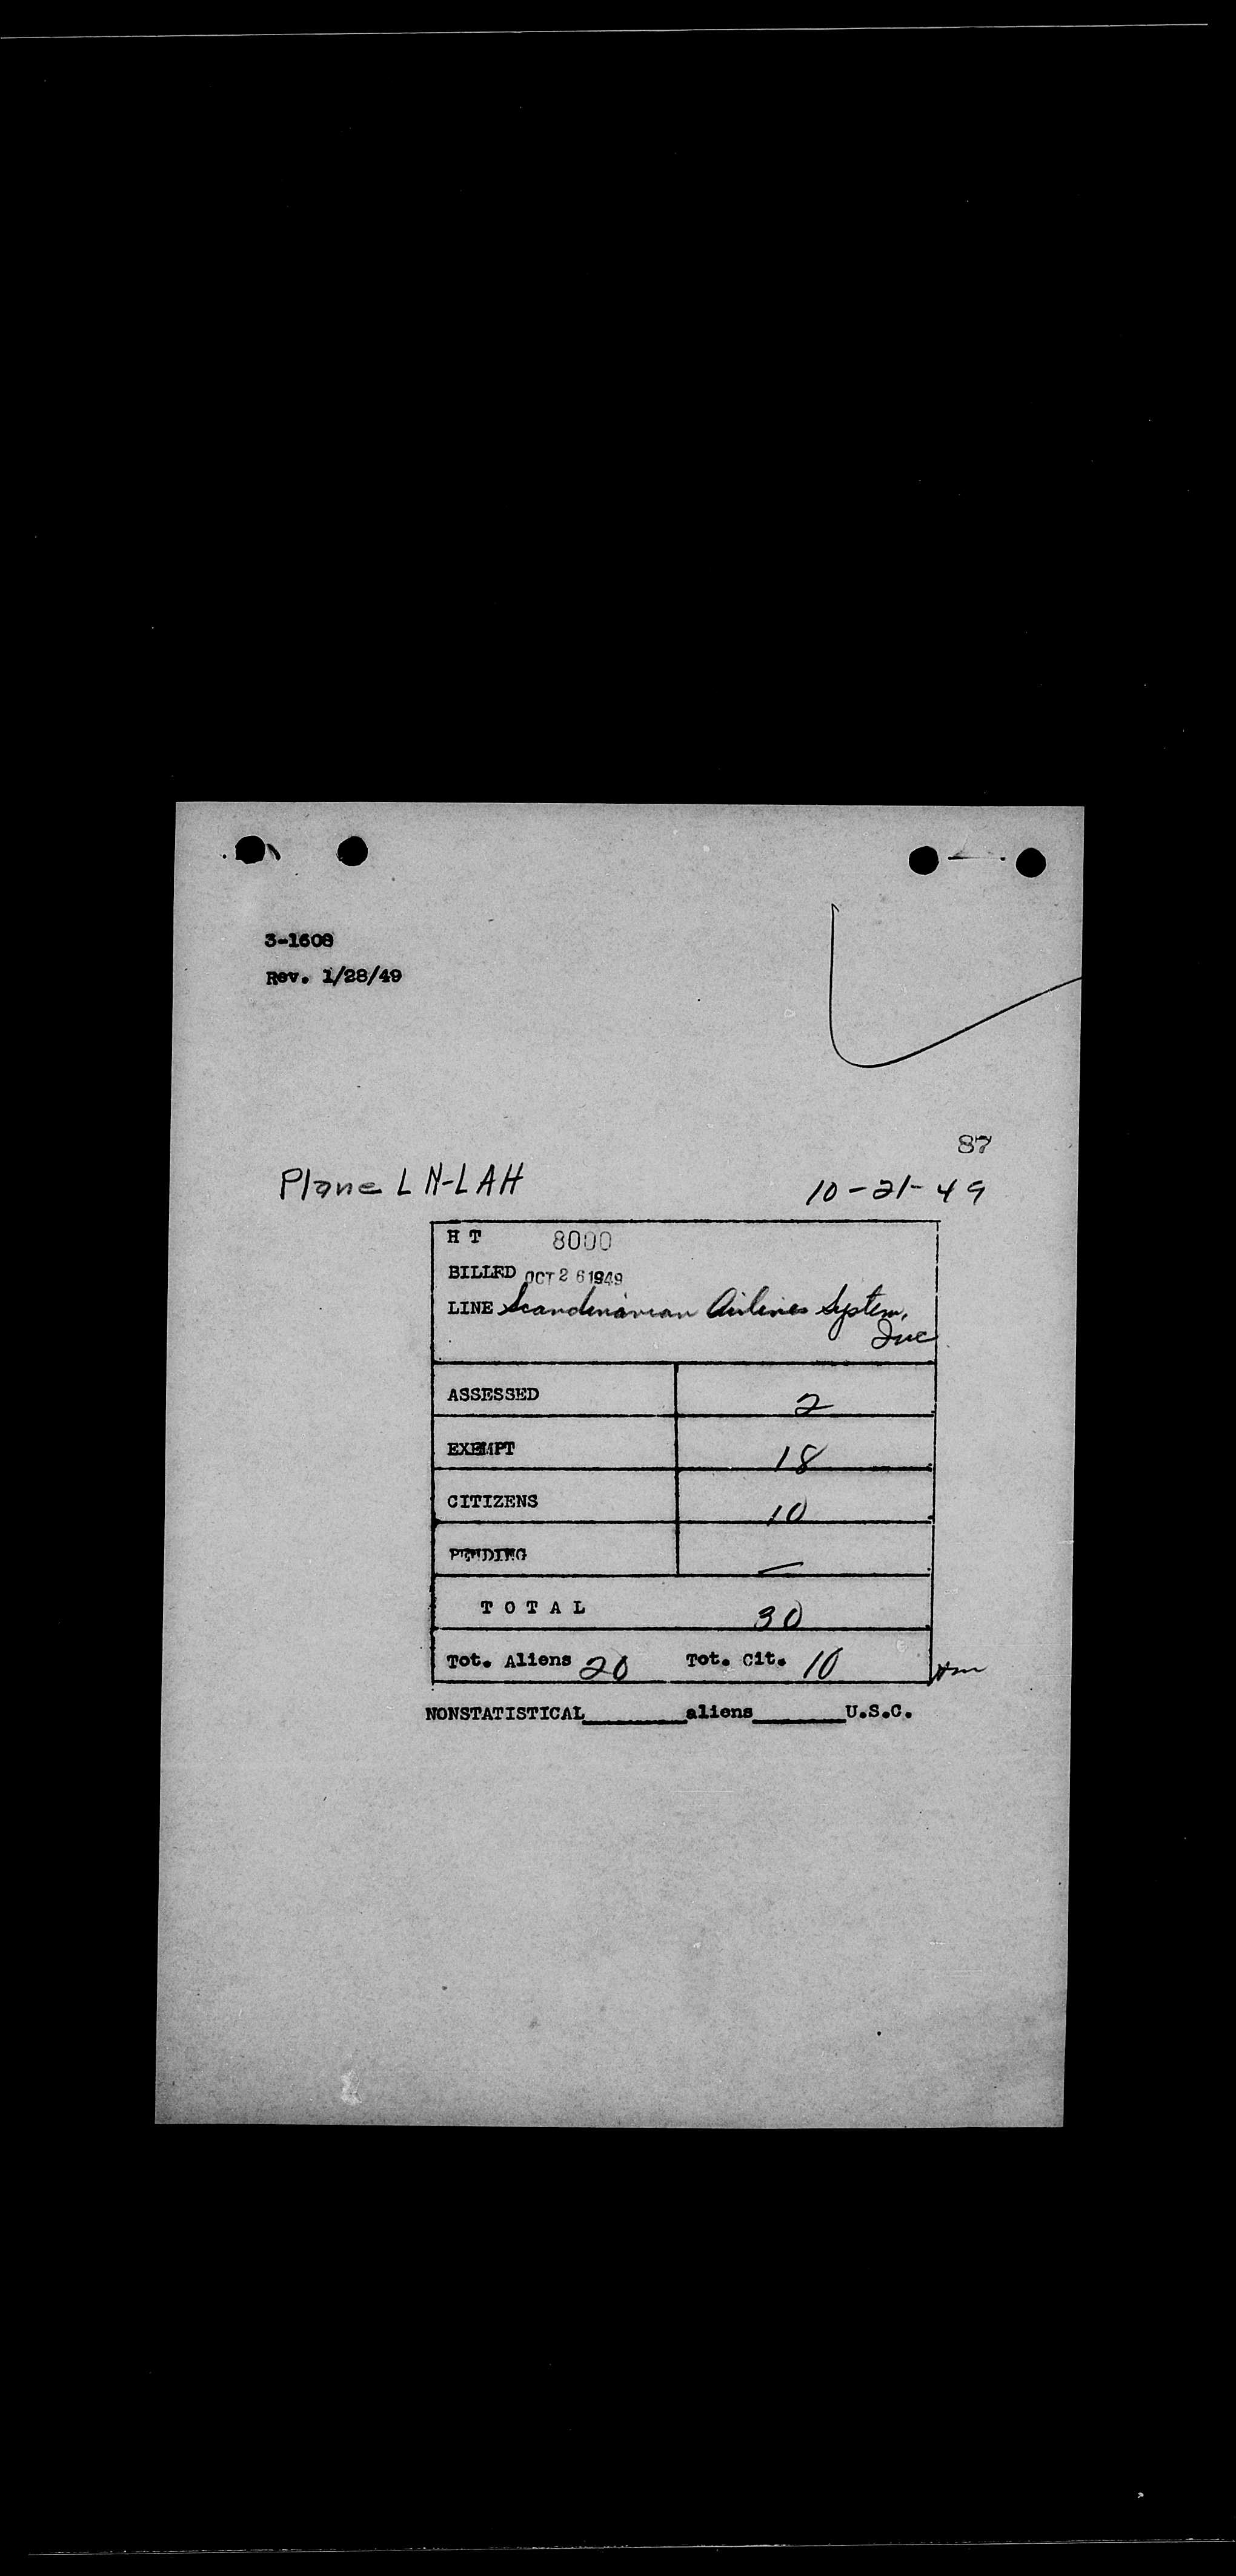 3-1608
Rev. 1/28/49
87
Plane LN-LAH 10-21-49
H T 8000
BILLED OCT 26 1949
LINE Scandinavian Airlines System,
Inc
ASSESSED 2
EXEMPT 18
CITIZENS 10
PENDING —
T O T A L 30
Tot. Aliens 20 Tot. Cit. 10
NONSTATISTICAL________aliens________U.S.C.